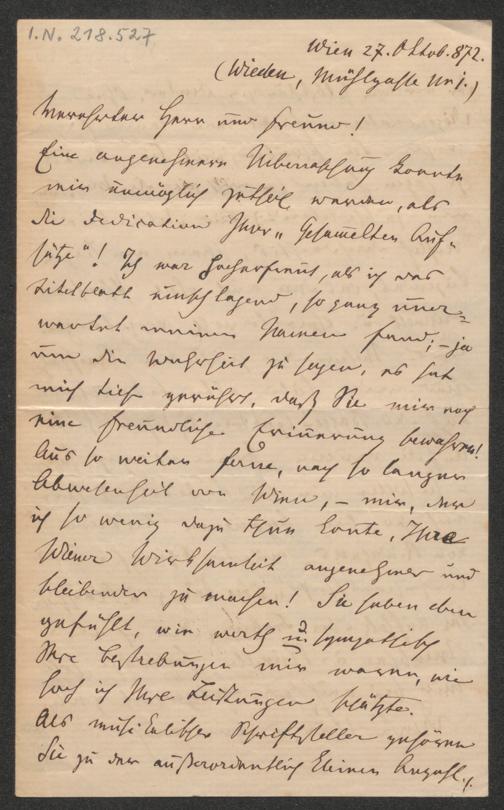 I.N. 218.527
Wien 27. Oktob. 872.
(Wieden, Mühlgasse Nr 1.)
Verehrter Herr und Freund!
Eine angenehmere Uiberraschung konnte
mir unmöglich zutheil werden, als
die Dedication Ihrer „Gesammelten Auf-
sätze"! Ich war hocherfreut, als ich das
Titelblatt umschlagend, so ganz uner-
wartet meinen Namen fand; – ja
um die Wahrheit zu sagen, es hat
mich tief gerührt, daß Sie mir noch
eine freundliche Erinnerung bewahren!
Aus so weiter Ferne, nach so langer
Abwesenheit von Wien, – mir, der
ich so wenig dazu thun konte, Ihre
Wiener Wirksamkeit angenehmer und
bleibender zu machen! Sie haben eben
gefühlt, wie werth und sympathisch
Ihre Bestrebungen mir waren, wie
hoch ich Ihre Leistungen schätzte.
Als musikalischer Schriftsteller gehören
Sie zu der außerordentlich kleinen Anzahl